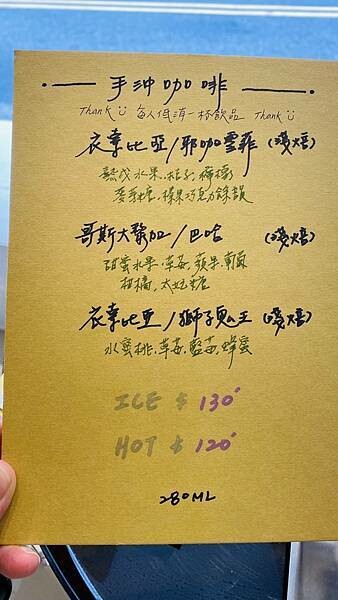 手沖咖啡
Thank 每人低消一杯飲品 Thank
衣索比亞/耶咖雪菲 (淺焙)
熱成水果.桔子.檸檬
麥芽糖.榛果巧克力餘韻
哥斯大黎加/巴哈 (淺焙)
甜蜜水果.草莓.蘋果.葡萄
柑橘.太妃糖
衣索比亞/獅子王 (淺焙)
水蜜桃.草莓.藍莓.蜂蜜
ICE $ 130
HOT $ 120
280ML